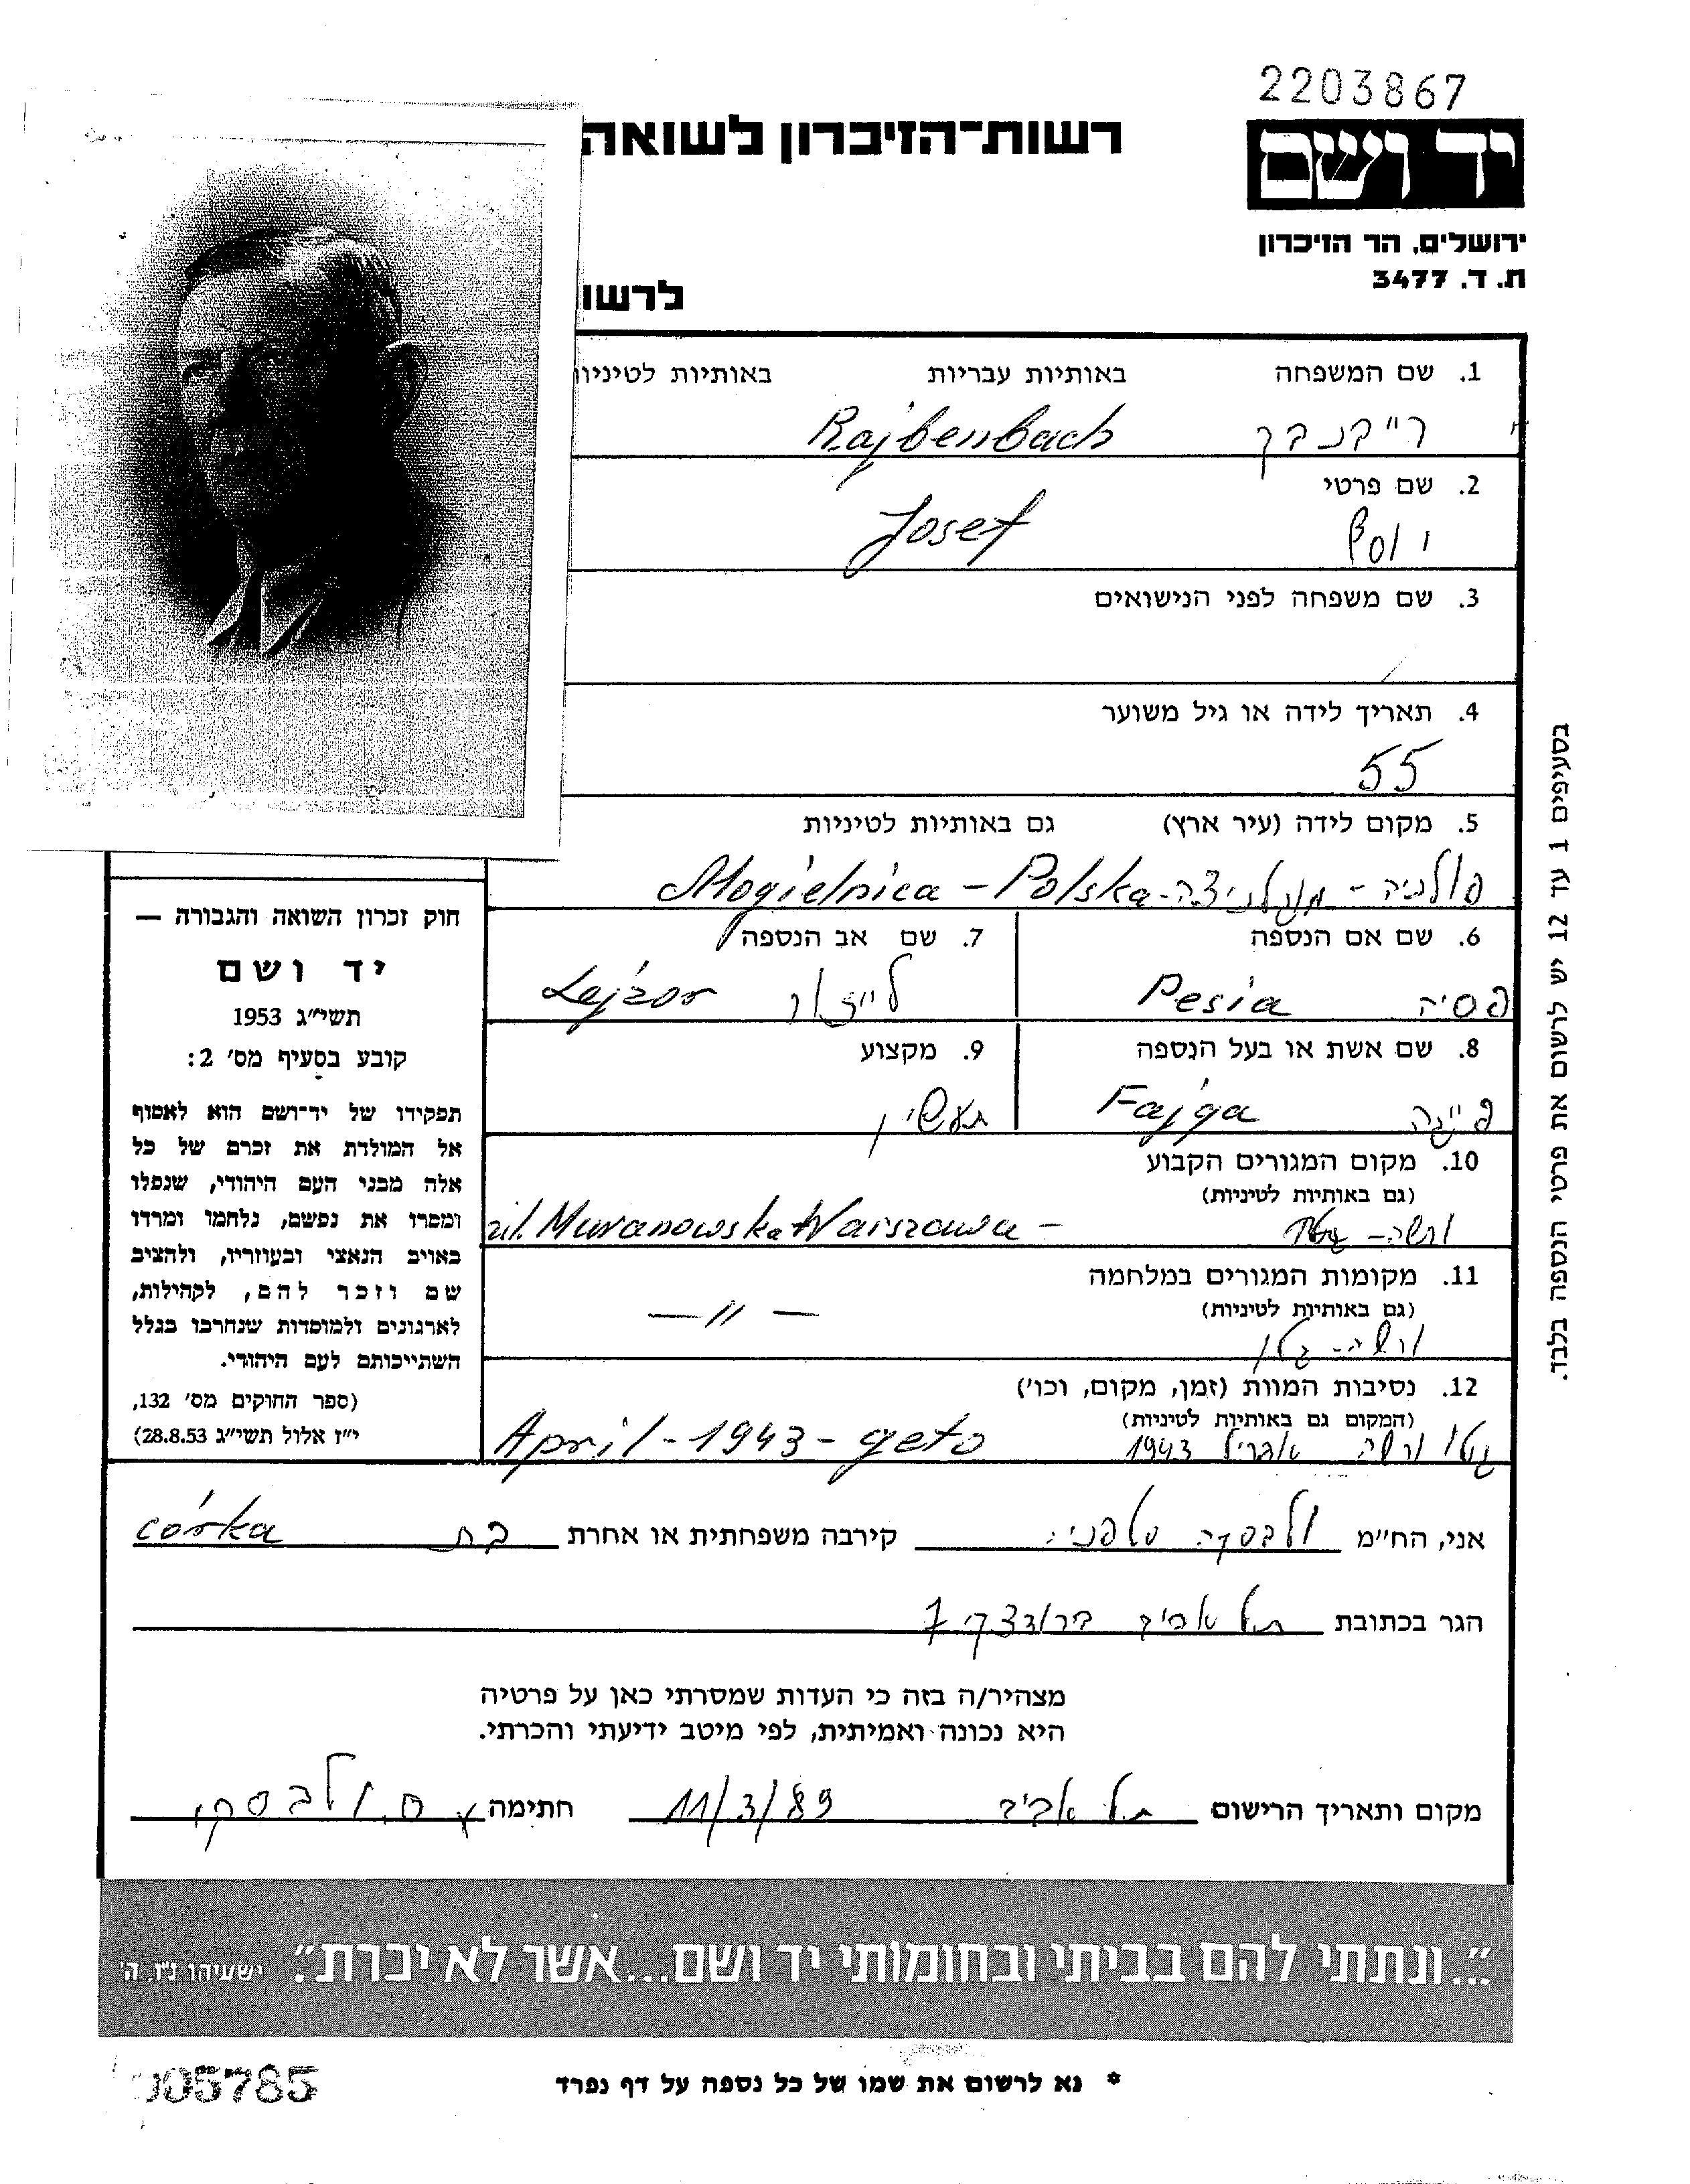 2203867
יד ושם
רשות־הזיכרון לשואה
ירושלים, הר הזיכרון
ת. ד. 3477
לרשו
1. שם המשפחה באותיות עבריות באותיות לטיניו
ר"בנבך Rajbenbach
2. שם פרטי
יוסף Josef
3. שם משפחה לפני הנישואים
4. תאריך לידה או גיל משוער
55
5. מקום לידה (עיר ארץ) גם באותיות לטיניות
פולניה - מוגלניצה - Mogielnica - Polska
6. שם אם הנספה
פסיה Pesia
7. שם אב הנספה
לייזור Lejzor
8. שם אשת או בעל הנספה
פייגה Fajga
9. מקצוע
תעשין
10. מקום המגורים הקבוע
(גם באותיות לטיניות)
ורשה - Warszawa - ul. Muranowska
11. מקומות המגורים במלחמה
(גם באותיות לטיניות)
ורשה - גטו — 〃 —
12. נסיבות המוות (זמן, מקום, וכו')
(המקום גם באותיות לטיניות)
גטו ורשה אפריל 1943 April - 1943 - geto
חוק זכרון השואה והגבורה —
יד ושם
תשי"ג 1953
קובע בסעיף מס' 2:
תפקידו של יד־ושם הוא לאסוף
אל המולדת את זכרם של כל
אלה מבני העם היהודי, שנפלו
ומסרו את נפשם, נלחמו ומרדו
באויב הנאצי ובעוזריו, ולהציב
שם וזכר להם, לקהילות,
לארגונים ולמוסדות שנחרבו בגלל
השתייכותם לעם היהודי.
(ספר החוקים מס' 132,
י"ז אלול תשי"ג 28.8.53)
בסעיפים 1 עד 12 יש לרשום את פרטי הנספה בלבד.
אני, הח"מ ולבסקה סטפניה קירבה משפחתית או אחרת בת córka
הגר בכתובת תל אביב ברודצקי 7
מצהיר/ה בזה כי העדות שמסרתי כאן על פרטיה
היא נכונה ואמיתית, לפי מיטב ידיעתי והכרתי.
מקום ותאריך הרישום תל אביב 11/3/89 חתימה ס. ולבסקי
"...ונתתי להם בביתי ובחומותי יד ושם...אשר לא יכרת". ישעיהו נ"ו, ה'
* נא לרשום את שמו של כל נספה על דף נפרד
05785